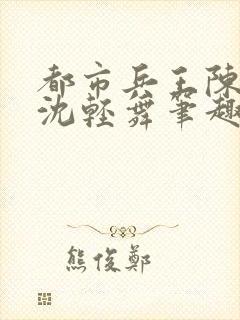 都市兵王陳
沈輕舞筆趣
熊俊鄭